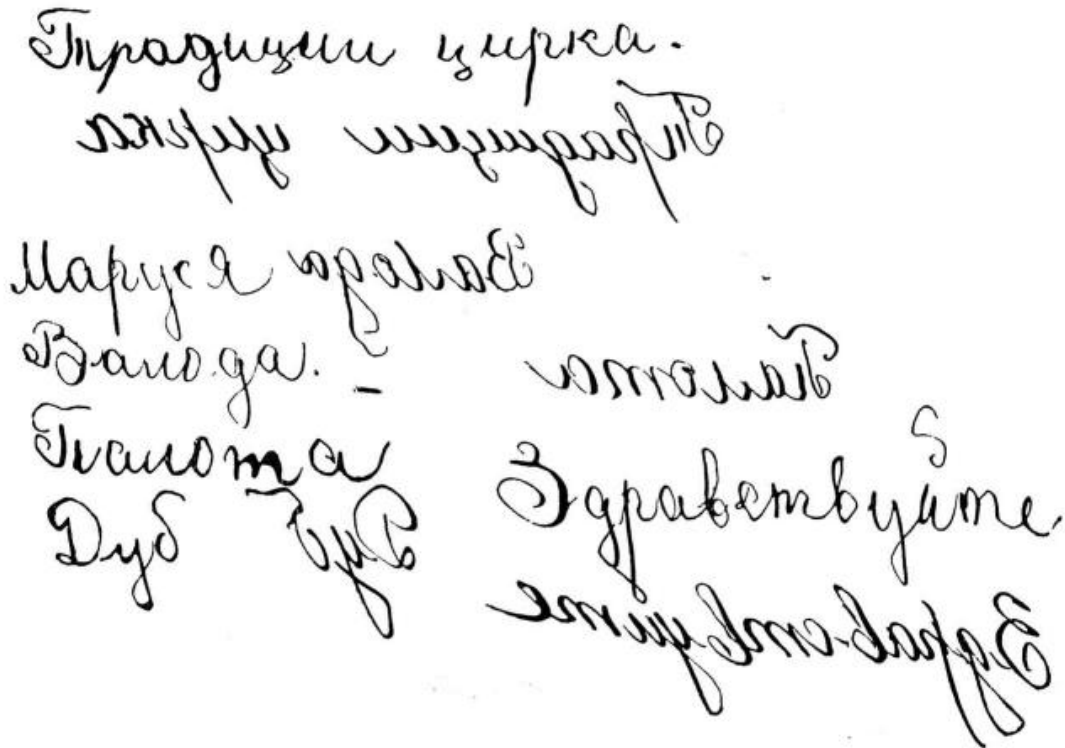 Традиции цирка.
Традиции цирка
Маруся Валода
Валода.
Палота
Палота
Здравствуйте.
Дуб Дуб
Здравствуйте